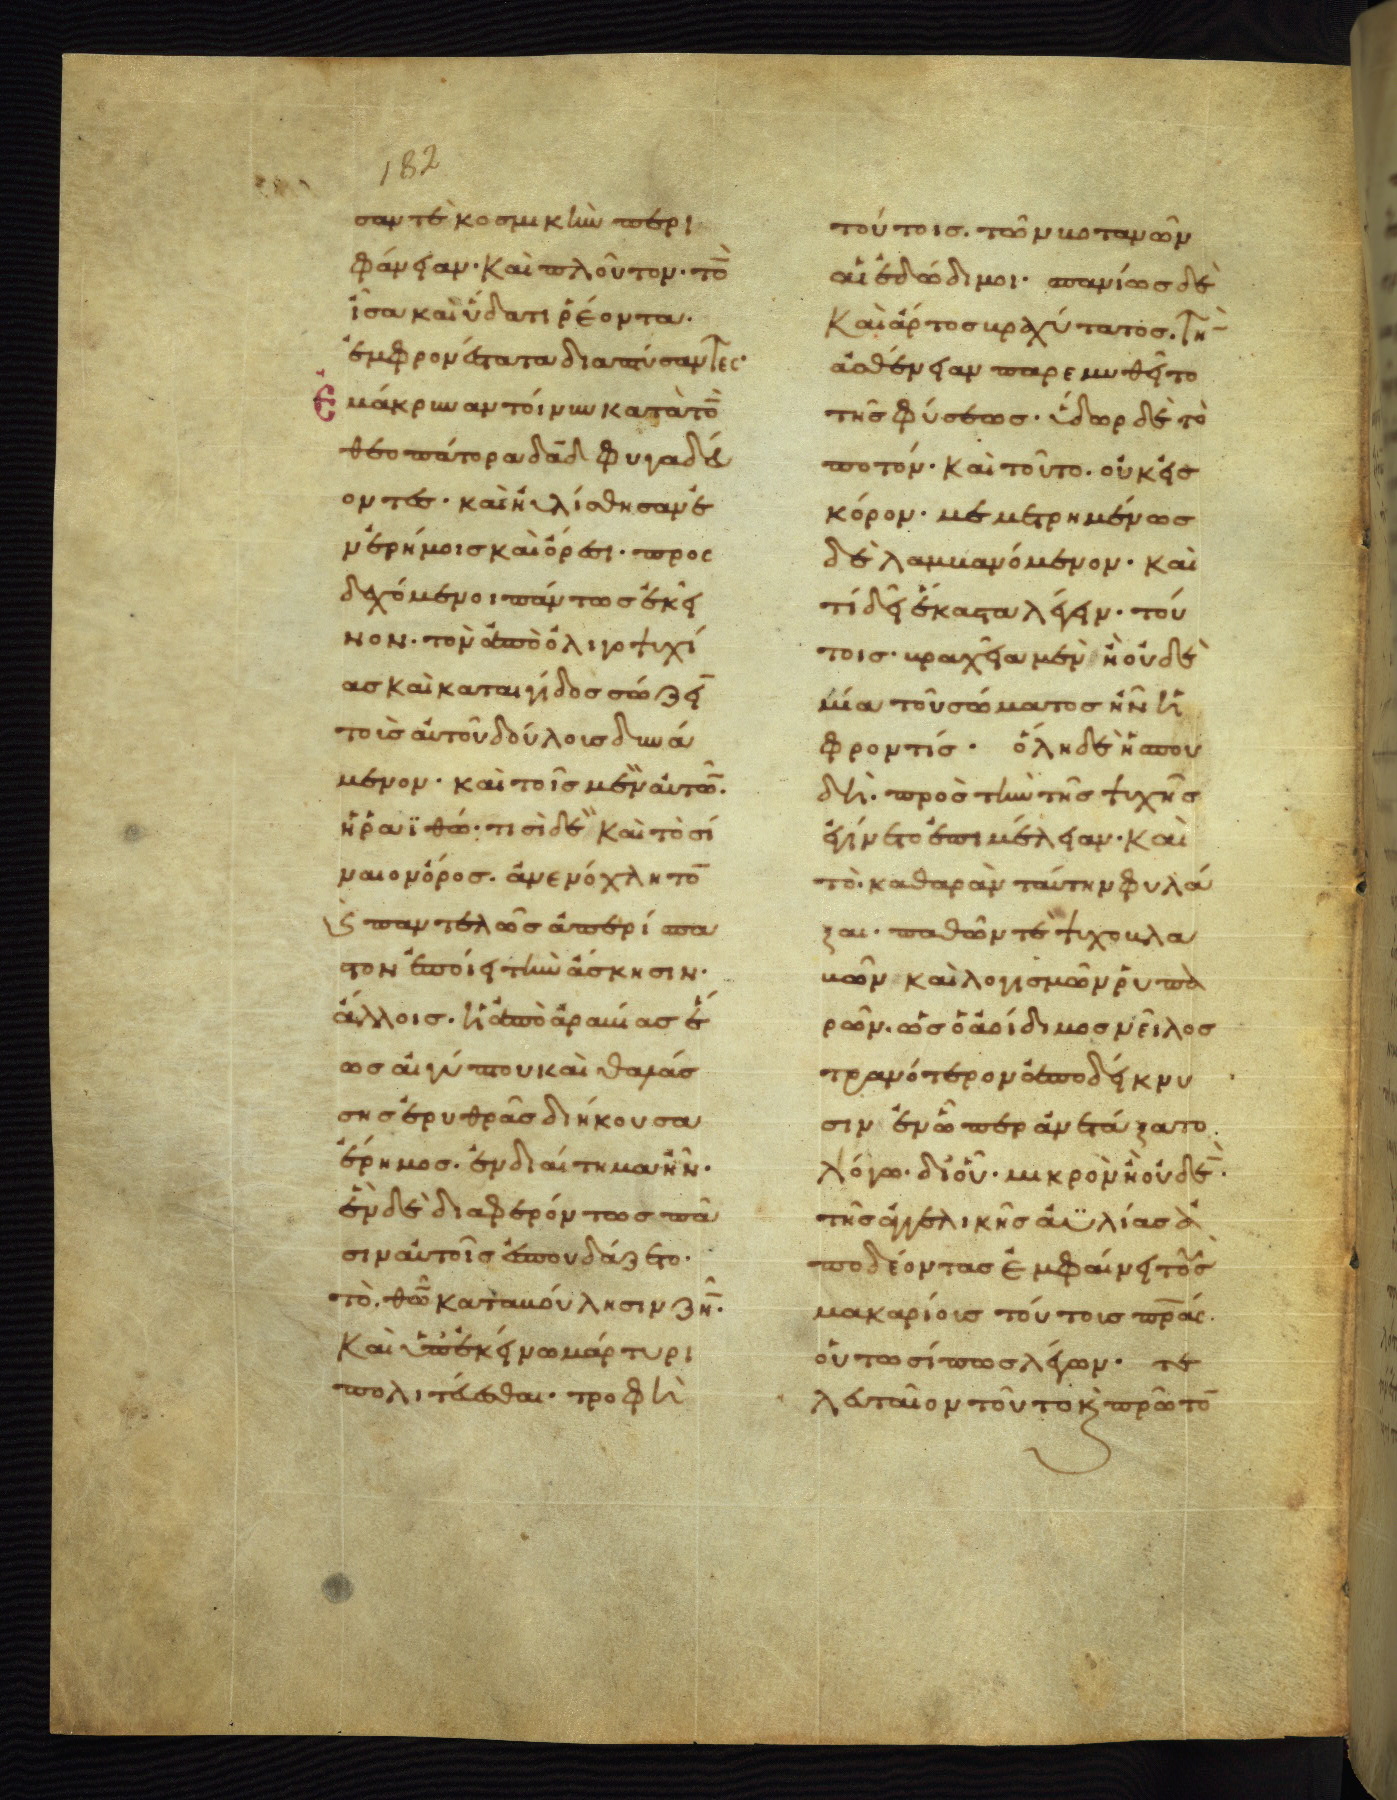 182
σαν τὲ κοσμικὴν περι
φάνειαν· καὶ πλοῦτον· τὸ̅
ἶσα καὶ ὕδατι ῥέοντα·
ἐμφρονέστατα διαπτύσαντες·
Ἐμάκρυναν τοίνυν κατὰ τὸ̅
θεοπάτορα δᾱδ φυγαδεύ
οντες· καὶ ηὐλίσθησαν ἐ
ν ἐρήμοις καὶ ὄρεσι· προσ
δεχόμενοι πάντως ἐκεῖ
νον· τὸν ἀπὸ ὀλιγοψυχί
ας καὶ καταιγίδος σώζει̅
τοὺς αὐτοῦ δούλους δυνά
μενον· καὶ τοῖς μὲν αὐτῶ̅·
ἡ ῥαϊθώ· τισὶ δὲ καὶ τὸ σί
ναιον ὄρος· ἀνενόχλητο̅
κ̀ παντελῶς ἀπερίσπα
στον ἐποίει τὴν ἄσκησιν·
ἄλλοις· ἡ ἀπὸ ἀραβίας ἕ
ως αἰγύπτου καὶ θαλάσ
σης ἐρυθρᾶς διήκουσα
ἔρημος· ἐνδιαίτημα ἦν·
ἓν δὲ διαφερόντως πᾶ
σιν αὐτοῖς ἐσπουδάζετο·
τὸ· θῶ̅ κατὰ βούλησιν ζῆ̅·
καὶ ὑπ' ἐκείνω μάρτυρι
πολιτεύεσθαι· τροφὴ
τούτοις· τῶν βοτανῶν
αἱ ἐδώδιμοι· σπανίως δὲ
καὶ ἄρτος βραχύτατος· τὴ̅
ἀσθένειαν παρεμυθεῖτο
τῆς φύσεως· ὕδωρ δὲ τὸ
ποτόν· καὶ τοῦτο· οὐκ εἰς
κόρον· μεμετρημένως
δὲ λαμβανόμενον· καὶ
τί δεῖ ἕκαστα λέγειν· τού
τοις· βραχεῖα μὲν ἢ οὐδε
μία τοῦ σώματος ἦν ἡ
φροντίς· ὅλη δὲ ἡ σπου
δὴ· πρὸς τὴν τῆς ψυχῆς
ἐγίνετο ἐπιμέλειαν· καὶ
τὸ· καθαρὰν ταύτην φυλά
ξαι· παθῶν τὲ ψυχοβλα
βῶν καὶ λογισμῶν ῥυπα
ρῶν· ὡς ὁ ἀοίδιμος νεῖλος
τρανότερον ἀποδείκνυ
σιν ἐν ᾧπερ ἀνετάξατο
λόγω· δι' οὗ· μικρὸν ἢ οὐδὲ̅·
τῆς ἀγγελικῆς ἀϋλίας ἀ
ποδέοντας ἐμφαίνει τοὺς
μακαρίους τούτους πρ̅ας·
οὑτωσί πως λέγων· τε
λευταῖον τοῦτο κ̀ πρῶτο̅